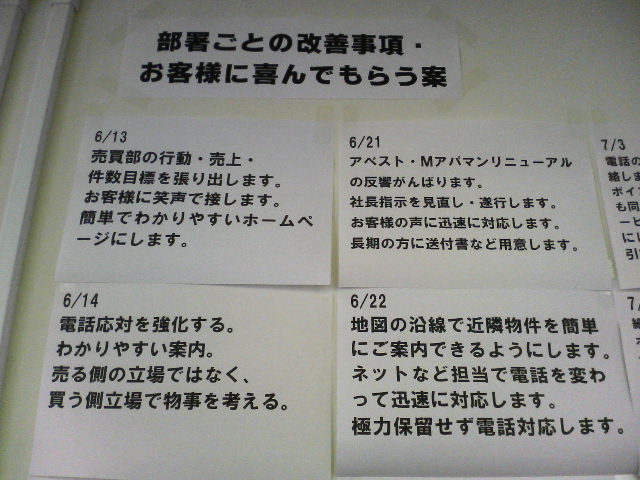 部署ごとの改善事項・
お客様に喜んでもらう案
6/13
売買部の行動・売上・
件数目標を張り出します。
お客様に笑声で接します。
簡単でわかりやすいホームペ
ージにします。
6/14
電話応対を強化する。
わかりやすい案内。
売る側の立場ではなく、
買う側立場で物事を考える。
6/21
アベスト・Mアパマンリニューアル
の反響がんばります。
社長指示を見直し・遂行します。
お客様の声に迅速に対応します。
長期の方に送付書など用意します。
6/22
地図の沿線で近隣物件を簡単
にご案内できるようにします。
ネットなど担当で電話を変わ
って迅速に対応します。
極力保留せず電話対応します。
7/3
電話の
絡しま
ポイ
も同
ービ
にし
引
7/